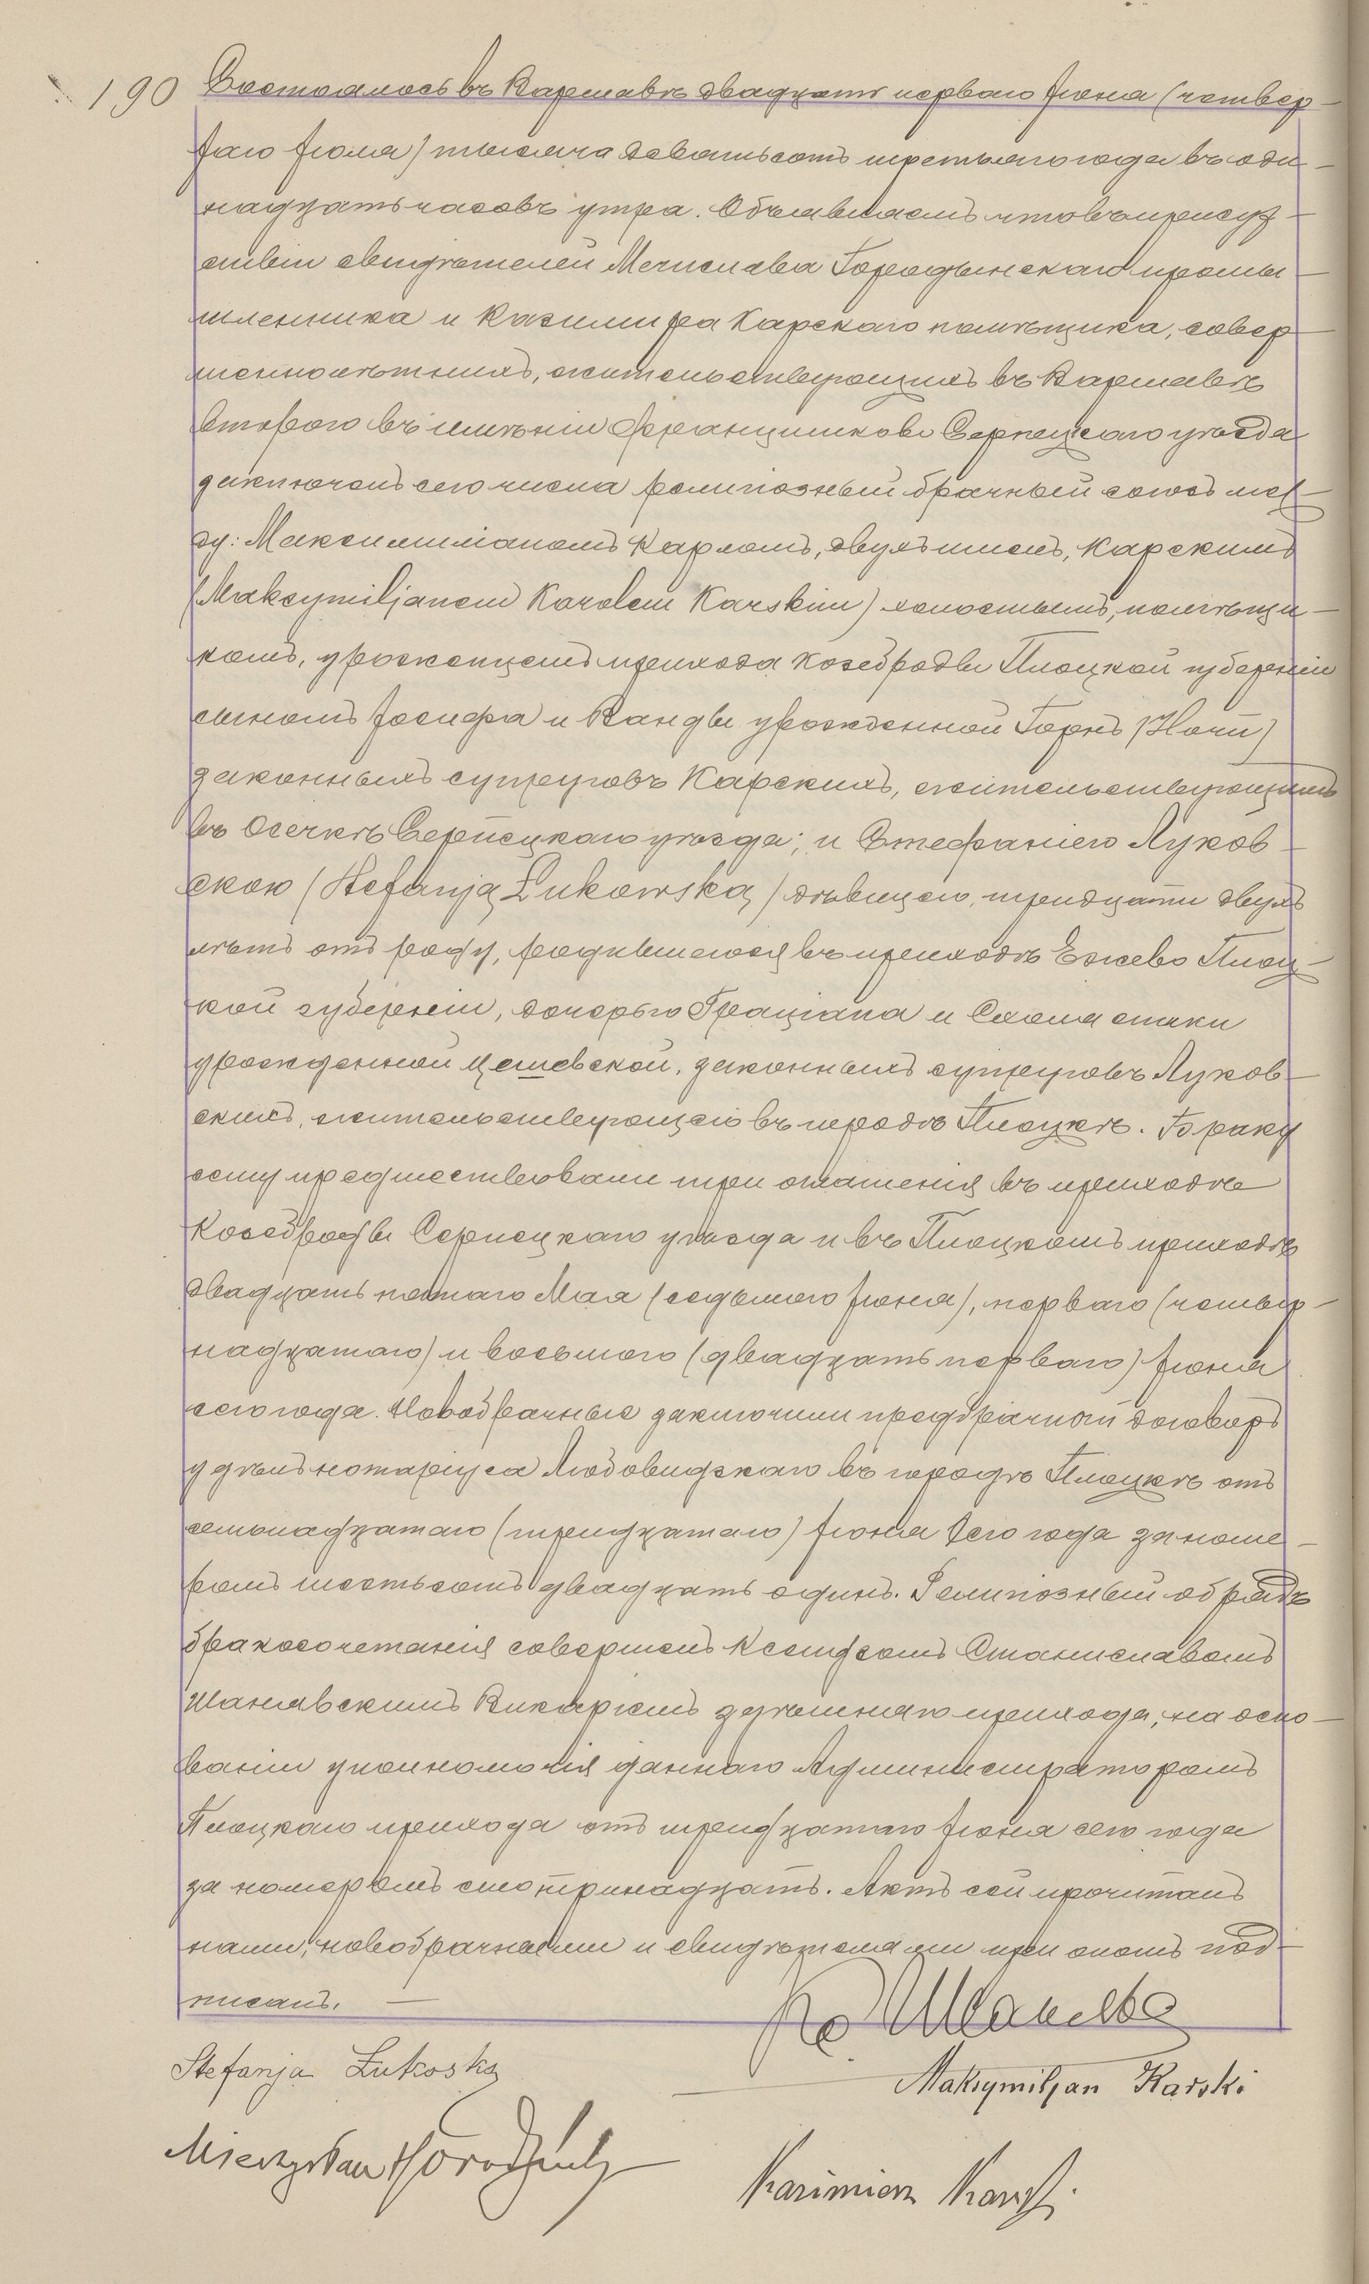 190 Состоялось въ Варшавѣ двадцать перваго Іюня (четвер-
таго Іюля) тысяча девятьсотъ третьяго года въ оди-
надцать часовъ утра. Объявляемъ что въ присуд-
ствіи свидѣтелей Мечислава Городынскаго промы-
шленника и Казимира Карскаго помѣщика, совер-
шеннолѣтнихъ, жительствующихъ въ Варшавѣ
второго въ имѣніи Францишково Серпецкаго уѣзда
заключенъ сего числа религіозный брачный союзъ меж-
ду: Максимиліаномъ Карломъ, двухъ именъ, Карскимъ
(Maksymiljanem Karolem Karskim) холостымъ, помѣщи-
комъ, уроженцемъ прихода Козебродзы Плоцкой губерніи
сыномъ Іосифа и Ванды урожденной Горнъ (Horn)
законныхъ супруговъ Карскихъ, жительствующимъ
въ Осечкѣ Серпецкаго уѣзда; и Стефаніею Луков-
скою (Stefanją Łukowską) дѣвицею, тридцати двухъ
лѣтъ отъ роду, родившеюся въ приходѣ Ежево Плоц-
кой губерніи, дочерью Граціана и Схоластики
урожденной Цешевской, законныхъ супруговъ Луков-
скихъ, жительствующею въ городѣ Плоцкѣ. Браку
сему предшествовали три оглашенія въ приходѣ
Козебродзы Серпецкаго уѣзда и въ Плоцкомъ приходѣ
двадцать пятаго Мая (седьмого Іюня), перваго (четыр-
надцатаго) и восьмого (двадцать перваго) Іюня
сего года. Новобрачные заключили предбрачный договоръ
у нотаріуса Любовидзкаго въ городѣ Плоцкѣ отъ
семьнадцатаго (тридцатаго) Іюня сего года за номе-
ромъ шестьсотъ двадцать одинъ. Религіозный обрядъ
бракосочетанія совершенъ Ксендзомъ Станиславомъ
Шанявскимъ Викаріемъ здѣшняго прихода, на осно-
ваніи уполномочія даннаго Администраторомъ
Плоцкаго прихода отъ тридцатаго Іюня сего года
за номеромъ сто тринадцать. Актъ сей прочитанъ
нами, новобрачными и свидѣтелями при ономъ под-
писанъ. —
Кс Шанявс
Stefanja Łukoska
Maksymiljan Karski
Mieczysław Horodyński
Kazimierz Karski